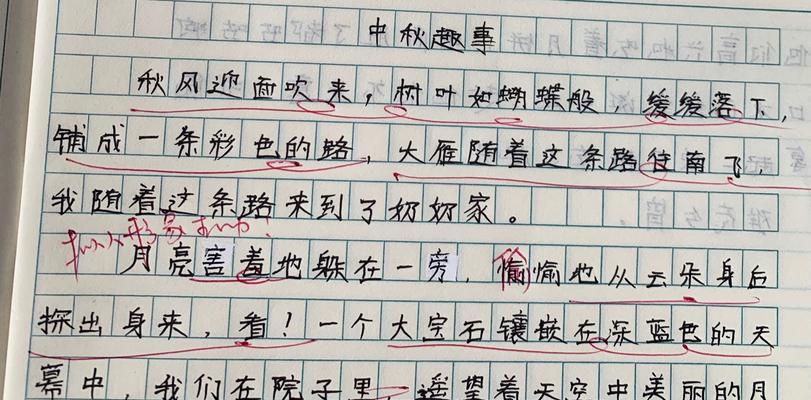 中秋趣事
秋风迎面吹来，树叶如蝴蝶般 缓缓落下，
铺成一条彩色的路，大雁随着这条路往南飞，
我随着这条路来到了奶奶家。
拟人形象
月亮害羞地躲在一旁，偷愉地从云朵身后
探出身来，看！一个大宝石镶嵌在深蓝色的天
幕中，我们在院子里，遥望着天空中美丽的月